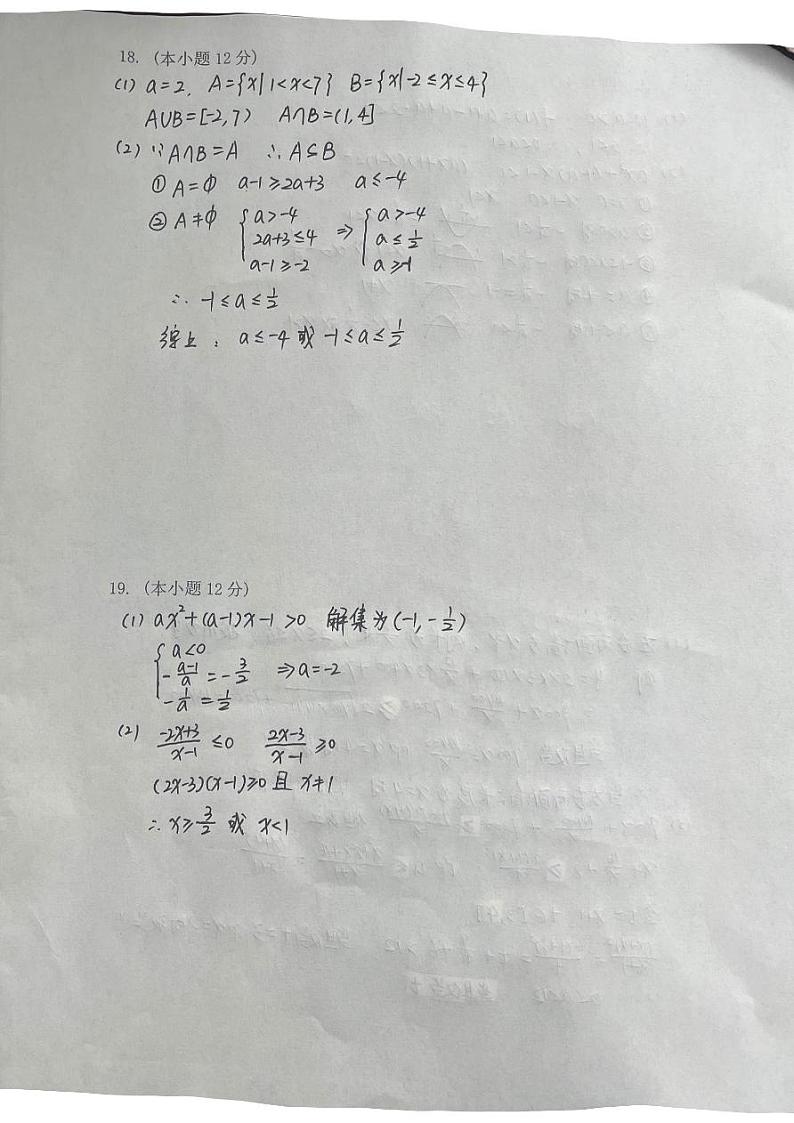 18. (本小题 12 分)
(1) a=2, A={x|1<x<7} B={x|-2≤x≤4}
A∪B=[-2,7) A∩B=(1,4]
(2) ∵A∩B=A ∴A⊆B
① A=ϕ a-1≥2a+3 a≤-4
② A≠ϕ { a>-4 2a+3≤4 a-1≥-2 ⇒ { a>-4 a≤1/2 a≥-1
∴ -1≤a≤1/2
综上: a≤-4 或 -1≤a≤1/2
19. (本小题 12 分)
(1) ax²+(a-1)x-1>0 解集为(-1,-1/2)
{ a<0
-(a-1)/a=-3/2 ⇒a=-2
-1/a=1/2
(2) (-2x+3)/(x-1)≤0 (2x-3)/(x-1)≥0
(2x-3)(x-1)≥0且 x≠1
∴x≥3/2 或 x<1